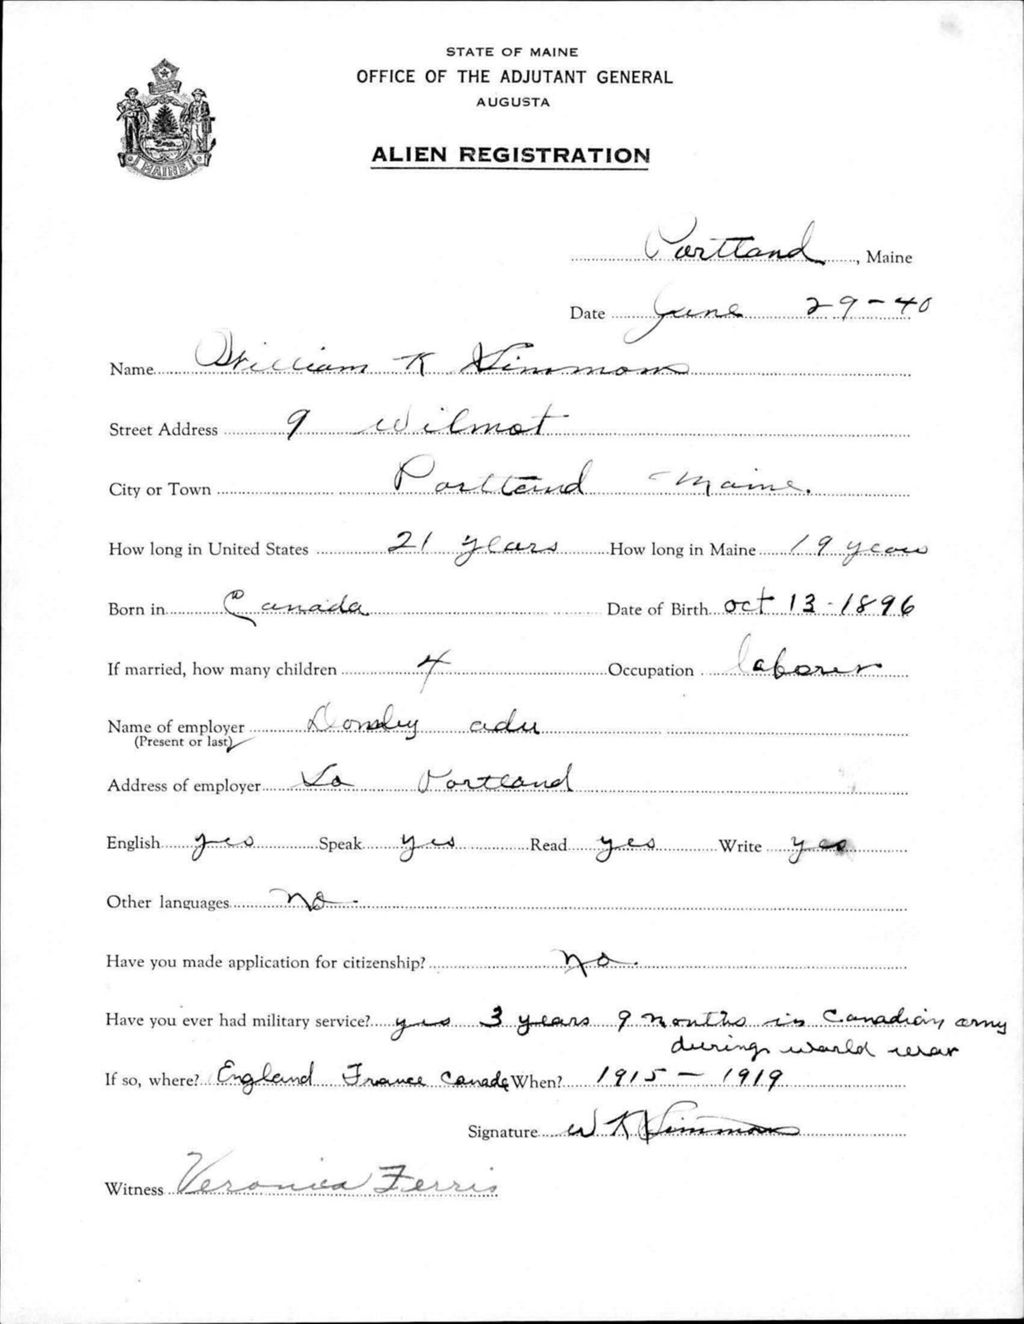 STATE OF MAINE
OFFICE OF THE ADJUTANT GENERAL
AUGUSTA
MAINE
ALIEN REGISTRATION
Portland, Maine
Date June 29-40
Name William K Simmons
Street Address 9 Wilmot
City or Town Portland Maine.
How long in United States 21 years How long in Maine 19 years
Born in Canada Date of Birth oct 13-1896
If married, how many children 4 Occupation laborer
Name of employer
(Present or last)
Address of employer So Portland
English yes Speak yes Read yes Write yes
Other languages no.
Have you made application for citizenship? no.
Have you ever had military service? yes 3 years 9 months in Canadian army
during world war
If so, where? England France Canada When? 1915 - 1919
Signature W K Simmons
Witness Veronica Ferris